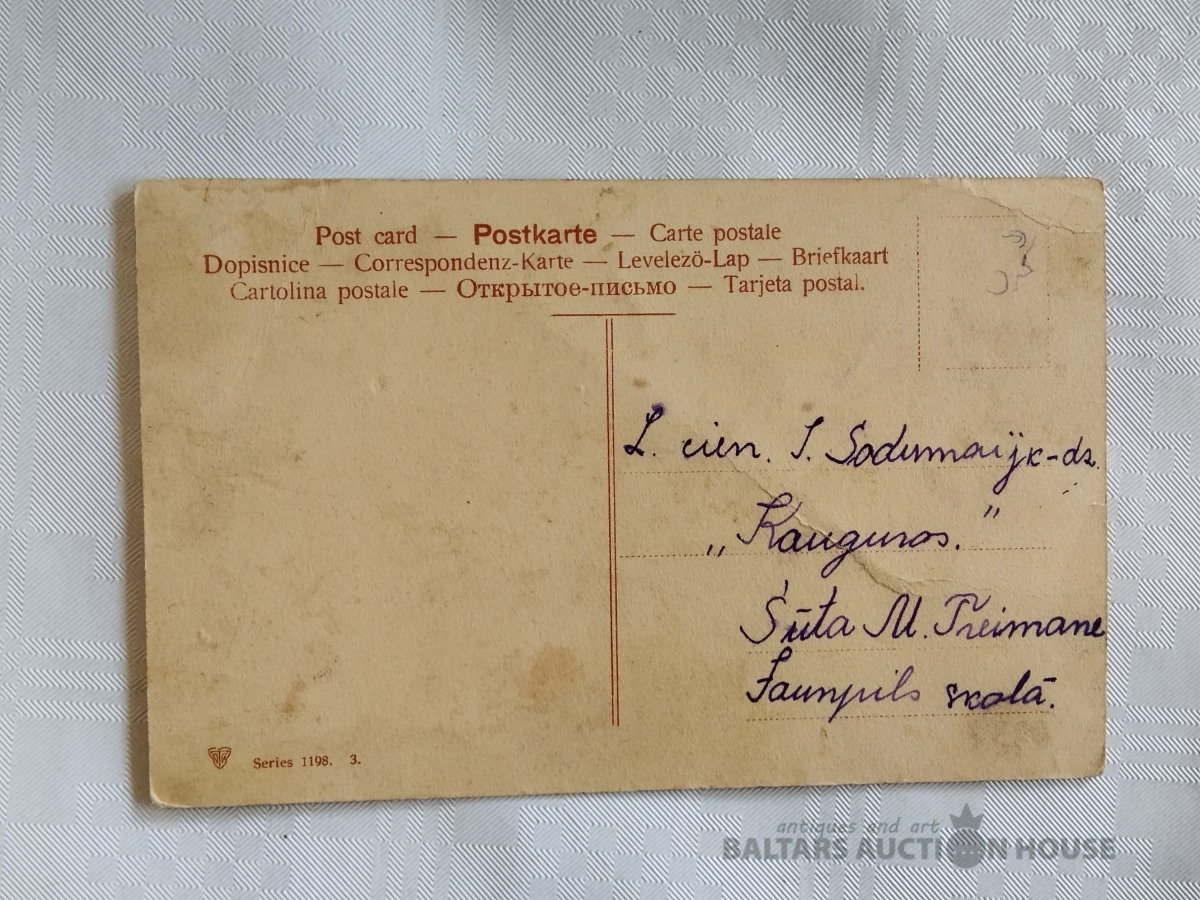 Post card — Postkarte — Carte postale
Dopisnice — Correspondenz-Karte — Levelező-Lap — Briefkaart
Cartolina postale — Открытое-письмо — Tarjeta postal.
L. cien. J. Sodumaijk-dz.
„Kauguros."
Sūta M. Treimane
Jaunpils skolā.
Series 1198. 3.
antiques and art
BALTARS AUCTION HOUSE